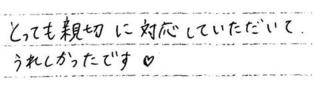 とっても親切に対応していただいて.
うれしかったです♡